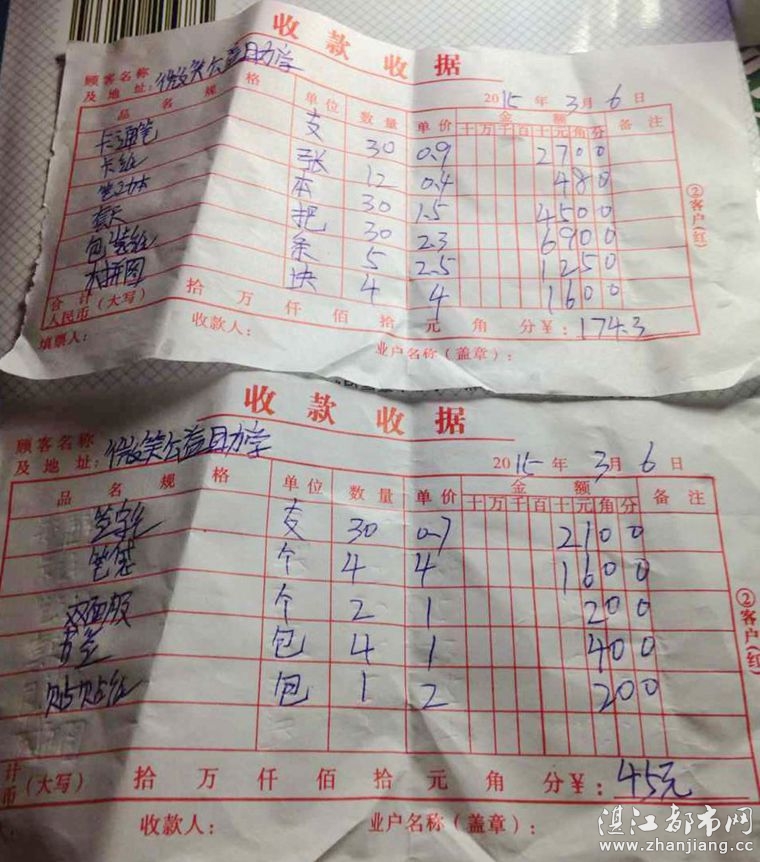 收款收据
顾客名称
及地址: 微笑公益助学 2015年3月6日
品名规格 单位 数量 单价 金额 备注
十万千百十元角分
卡通笔 支 30 0.9 2700
卡纸 张 12 0.4 480
笔功本 本 30 1.5 4500
套尺 把 30 2.3 6900
包装纸 条 5 2.5 1250
木拼图 块 4 4 1600
合计
人民币(大写) 拾 万 仟 佰 拾 元 角 分¥: 174.3
填票人: 收款人: 业户名称(盖章):
②客户(红)
收款收据
顾客名称
及地址: 微笑公益助学 2015年3月6日
品名规格 单位 数量 单价 金额 备注
十万千百十元角分
签字笔 支 30 0.7 2100
笔袋 个 4 4 1600
双面胶 个 2 1 200
包 4 1 400
贴贴纸 包 1 2 200
计
币(大写) 拾 万 仟 佰 拾 元 角 分¥: 45元
收款人: 业户名称(盖章):
②客户(红)
湛江都市网
www.zhanjiang.cc